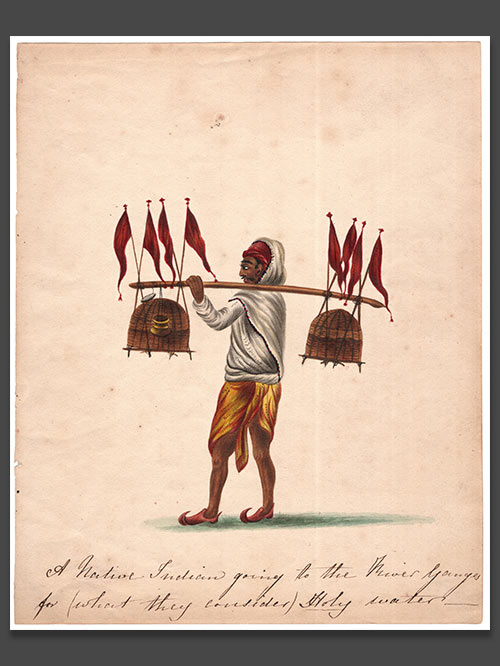 A Native Indian going to the River Ganges
for (what they consider) Holy water —